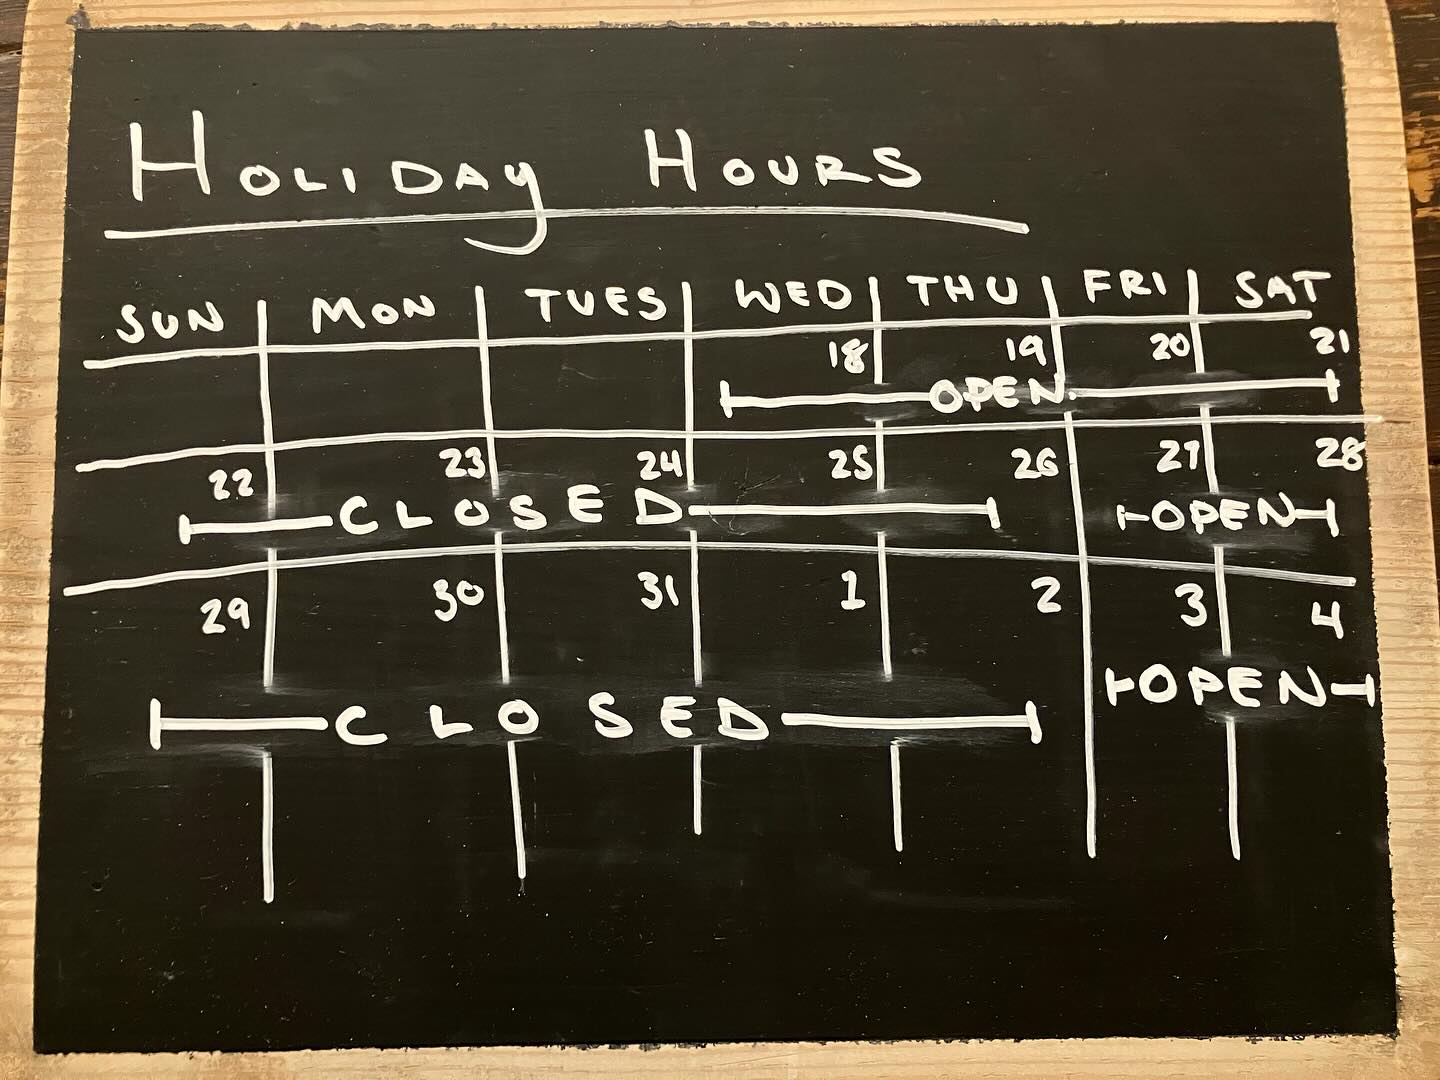 HOLIDAY HOURS
SUN MON TUES WED THU FRI SAT
18 19 20 21
OPEN
22 23 24 25 26 27 28
CLOSED OPEN
29 30 31 1 2 3 4
CLOSED OPEN